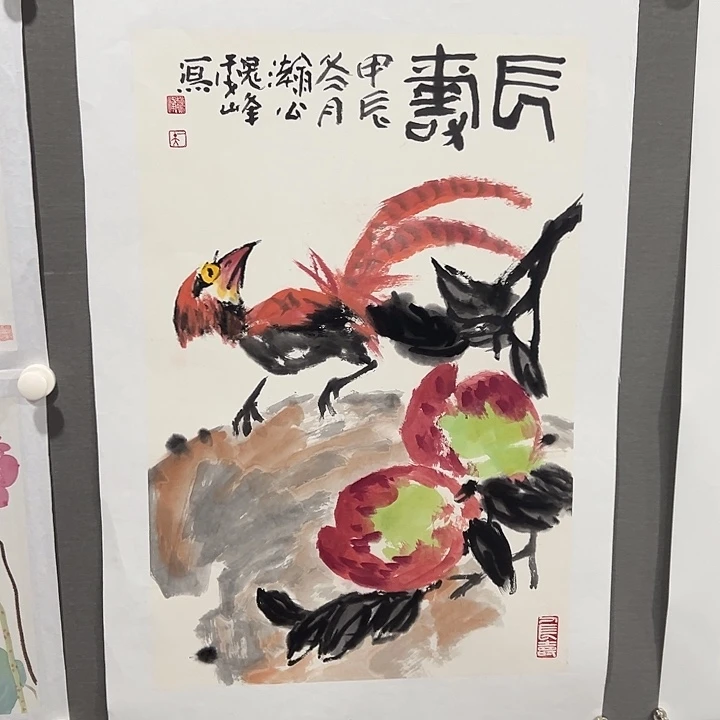 長壽
甲辰
冬月
瀚公
魏峰
寫
長壽